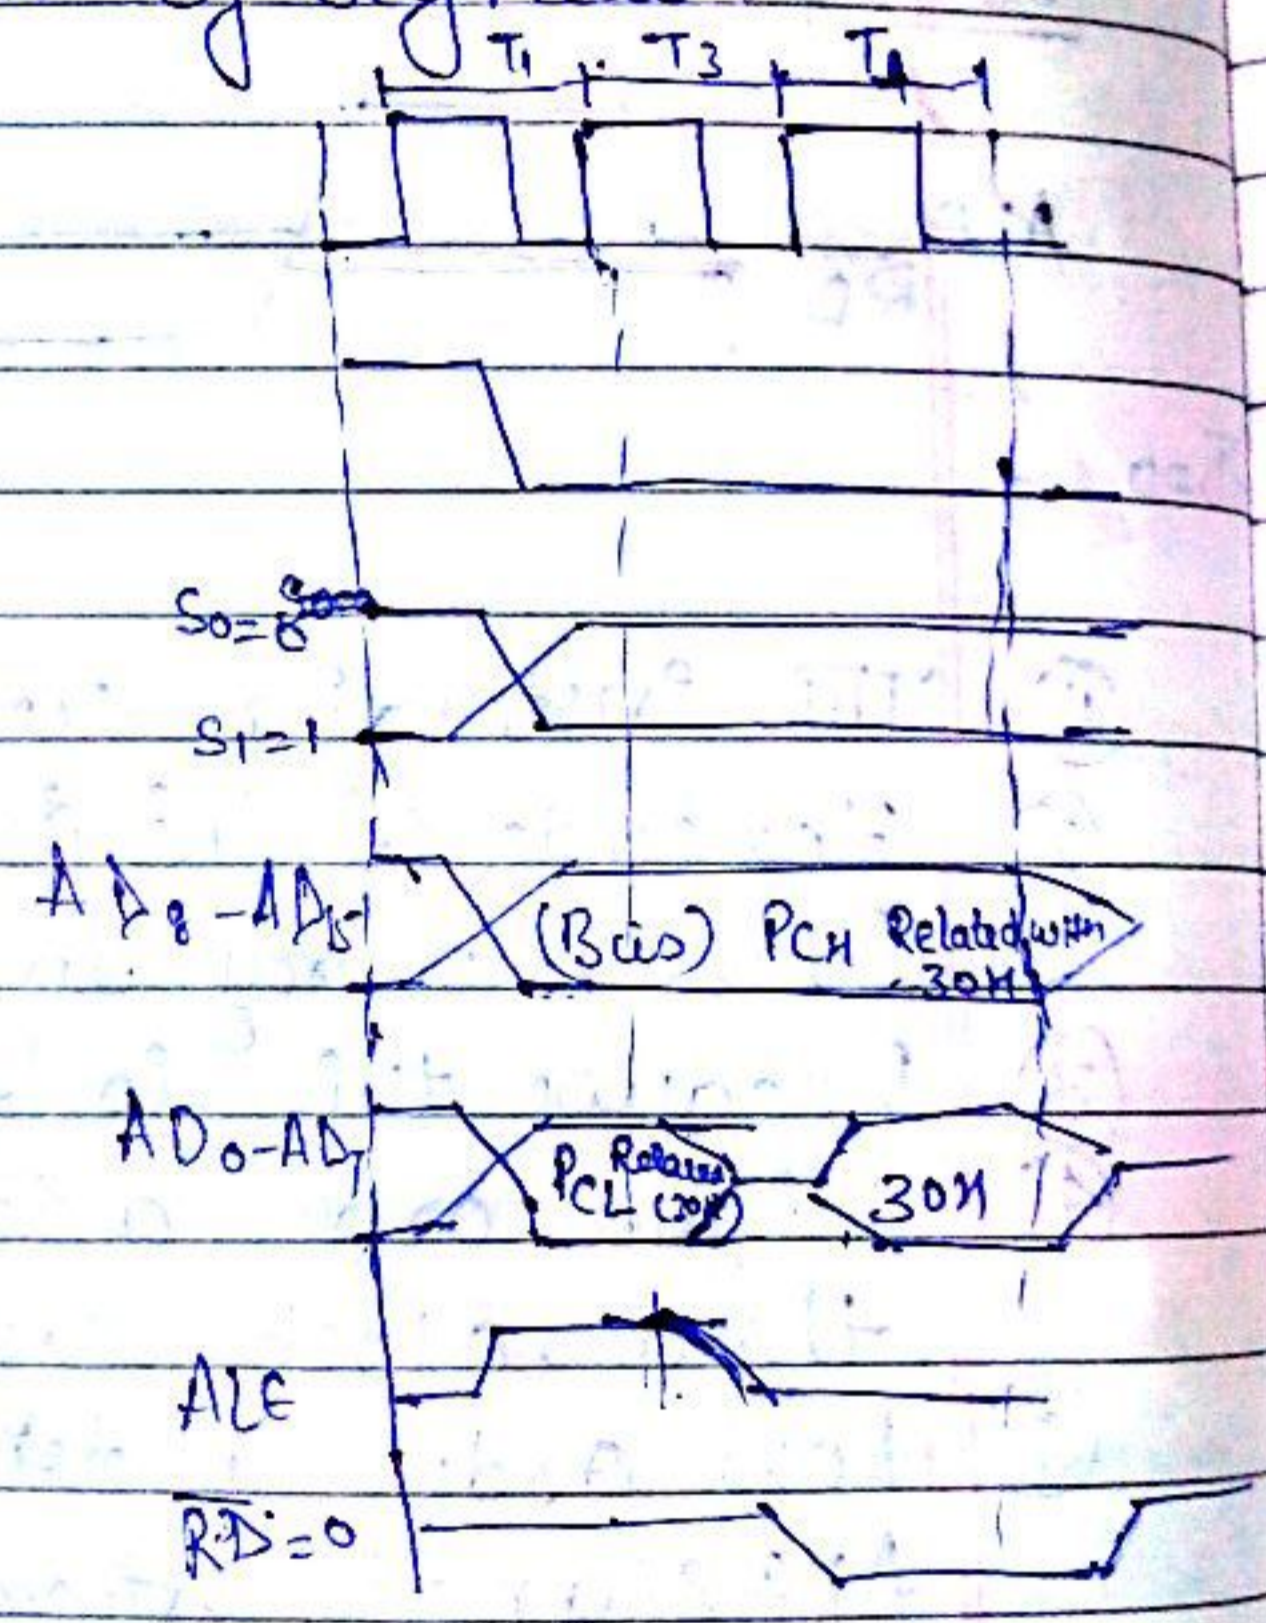 T1 T3
S0=0
S1=1
AD8-AD15
(Bus) PCH Related with
30H
AD0-AD7
PCL (30H)
30H
ALE
RD=0